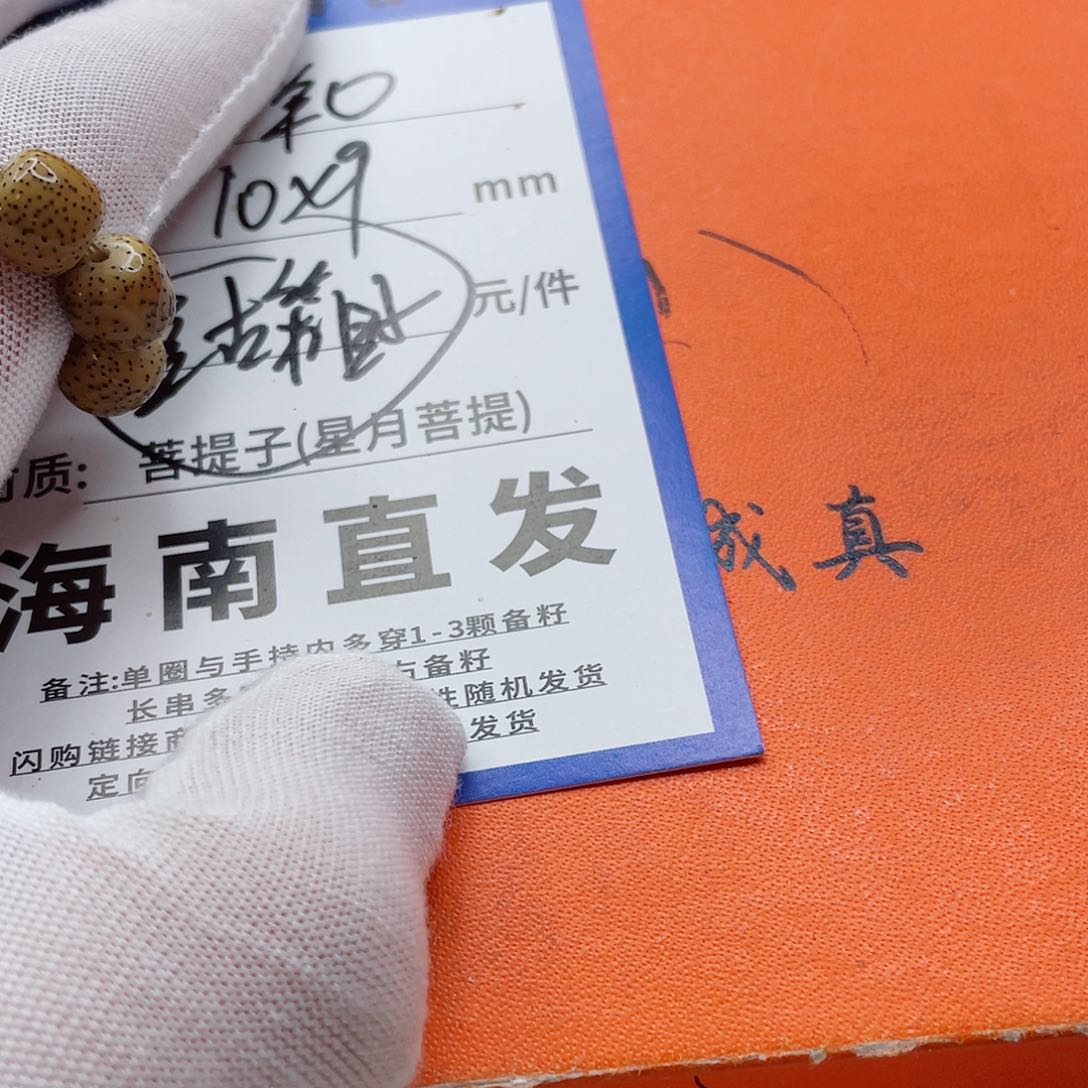 10x9 mm
元/件
质: 菩提子(星月菩提)
海南直发
备注:单圈与手持内多穿1-3颗备籽
长串多 备籽
性随机发货
闪购链接商 发货
定向
成真